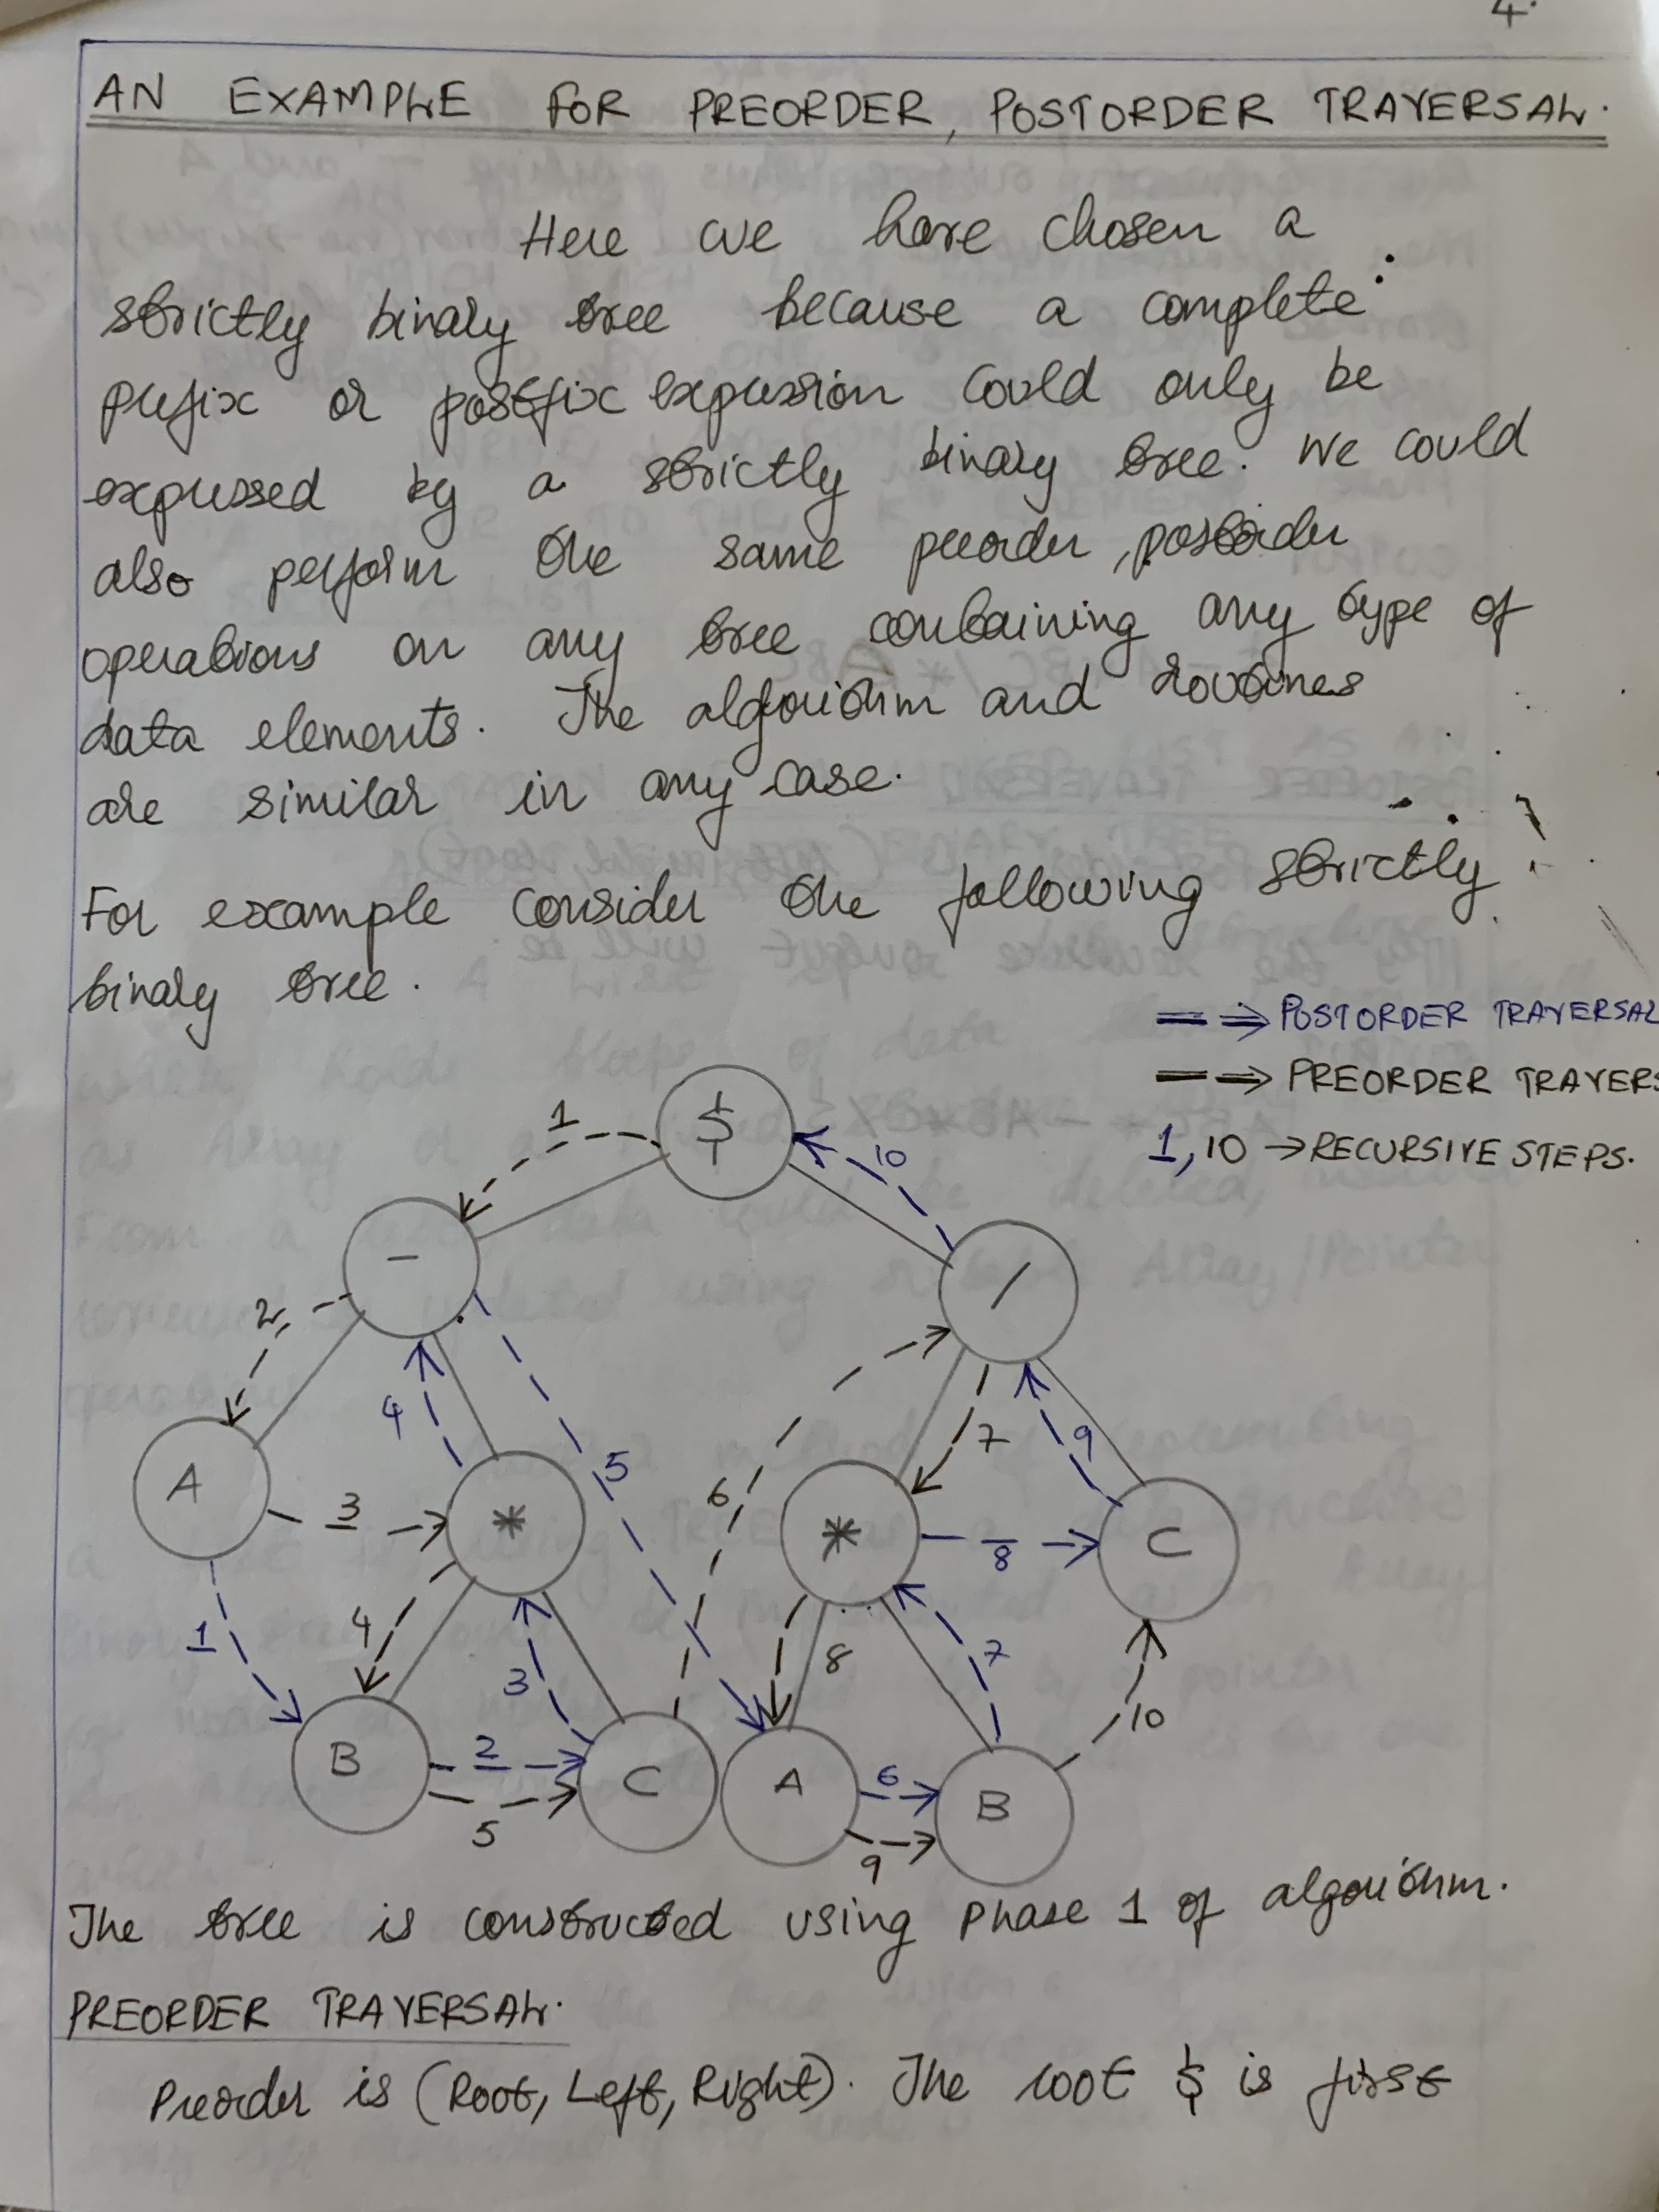 4.
AN EXAMPLE FOR PREORDER, POSTORDER TRAVERSAL.
Here we have chosen a
strictly binary tree because a complete
prefix or postfix expression could only be
expressed by a strictly binary tree. We could
also perform the same preorder, postorder
operations on any tree containing any type of
data elements. The algorithm and routines
are similar in any case.
For example consider the following strictly
binary tree.
POSTORDER TRAVERSAL
PREORDER TRAVERS
1, 10 → RECURSIVE STEPS.
1 $ 10
- /
2
4 7 9
A 3 * 5 6 * 8 C
1 4 3 8 7
B 2 C A 6 B 10
5 9
The tree is constructed using Phase 1 of algorithm.
PREORDER TRAVERSAL.
Preorder is (Root, Left, Right). The root $ is first